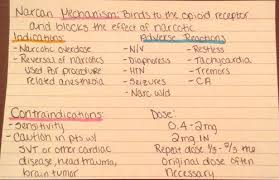 Narcan Mechanism: Binds to the opioid receptor
and blocks the effect of narcotic
Indications:
- Narcotic overdose
- Reversal of narcotics
used for procedure
related anesthesia
Adverse Reactions
- N/V
- Diaphoresis
- HTN
- Seizures
- Narc w/d
- Restless
- Tachycardia
- Tremors
- CA
Contraindications:
- Sensitivity
- Caution in pts w/
SVT or other cardiac
disease, head trauma,
brain tumor
Dose:
0.4-2mg
2mg IN
Repeat dose 1/3 - 2/3 the
original dose often
Necessary